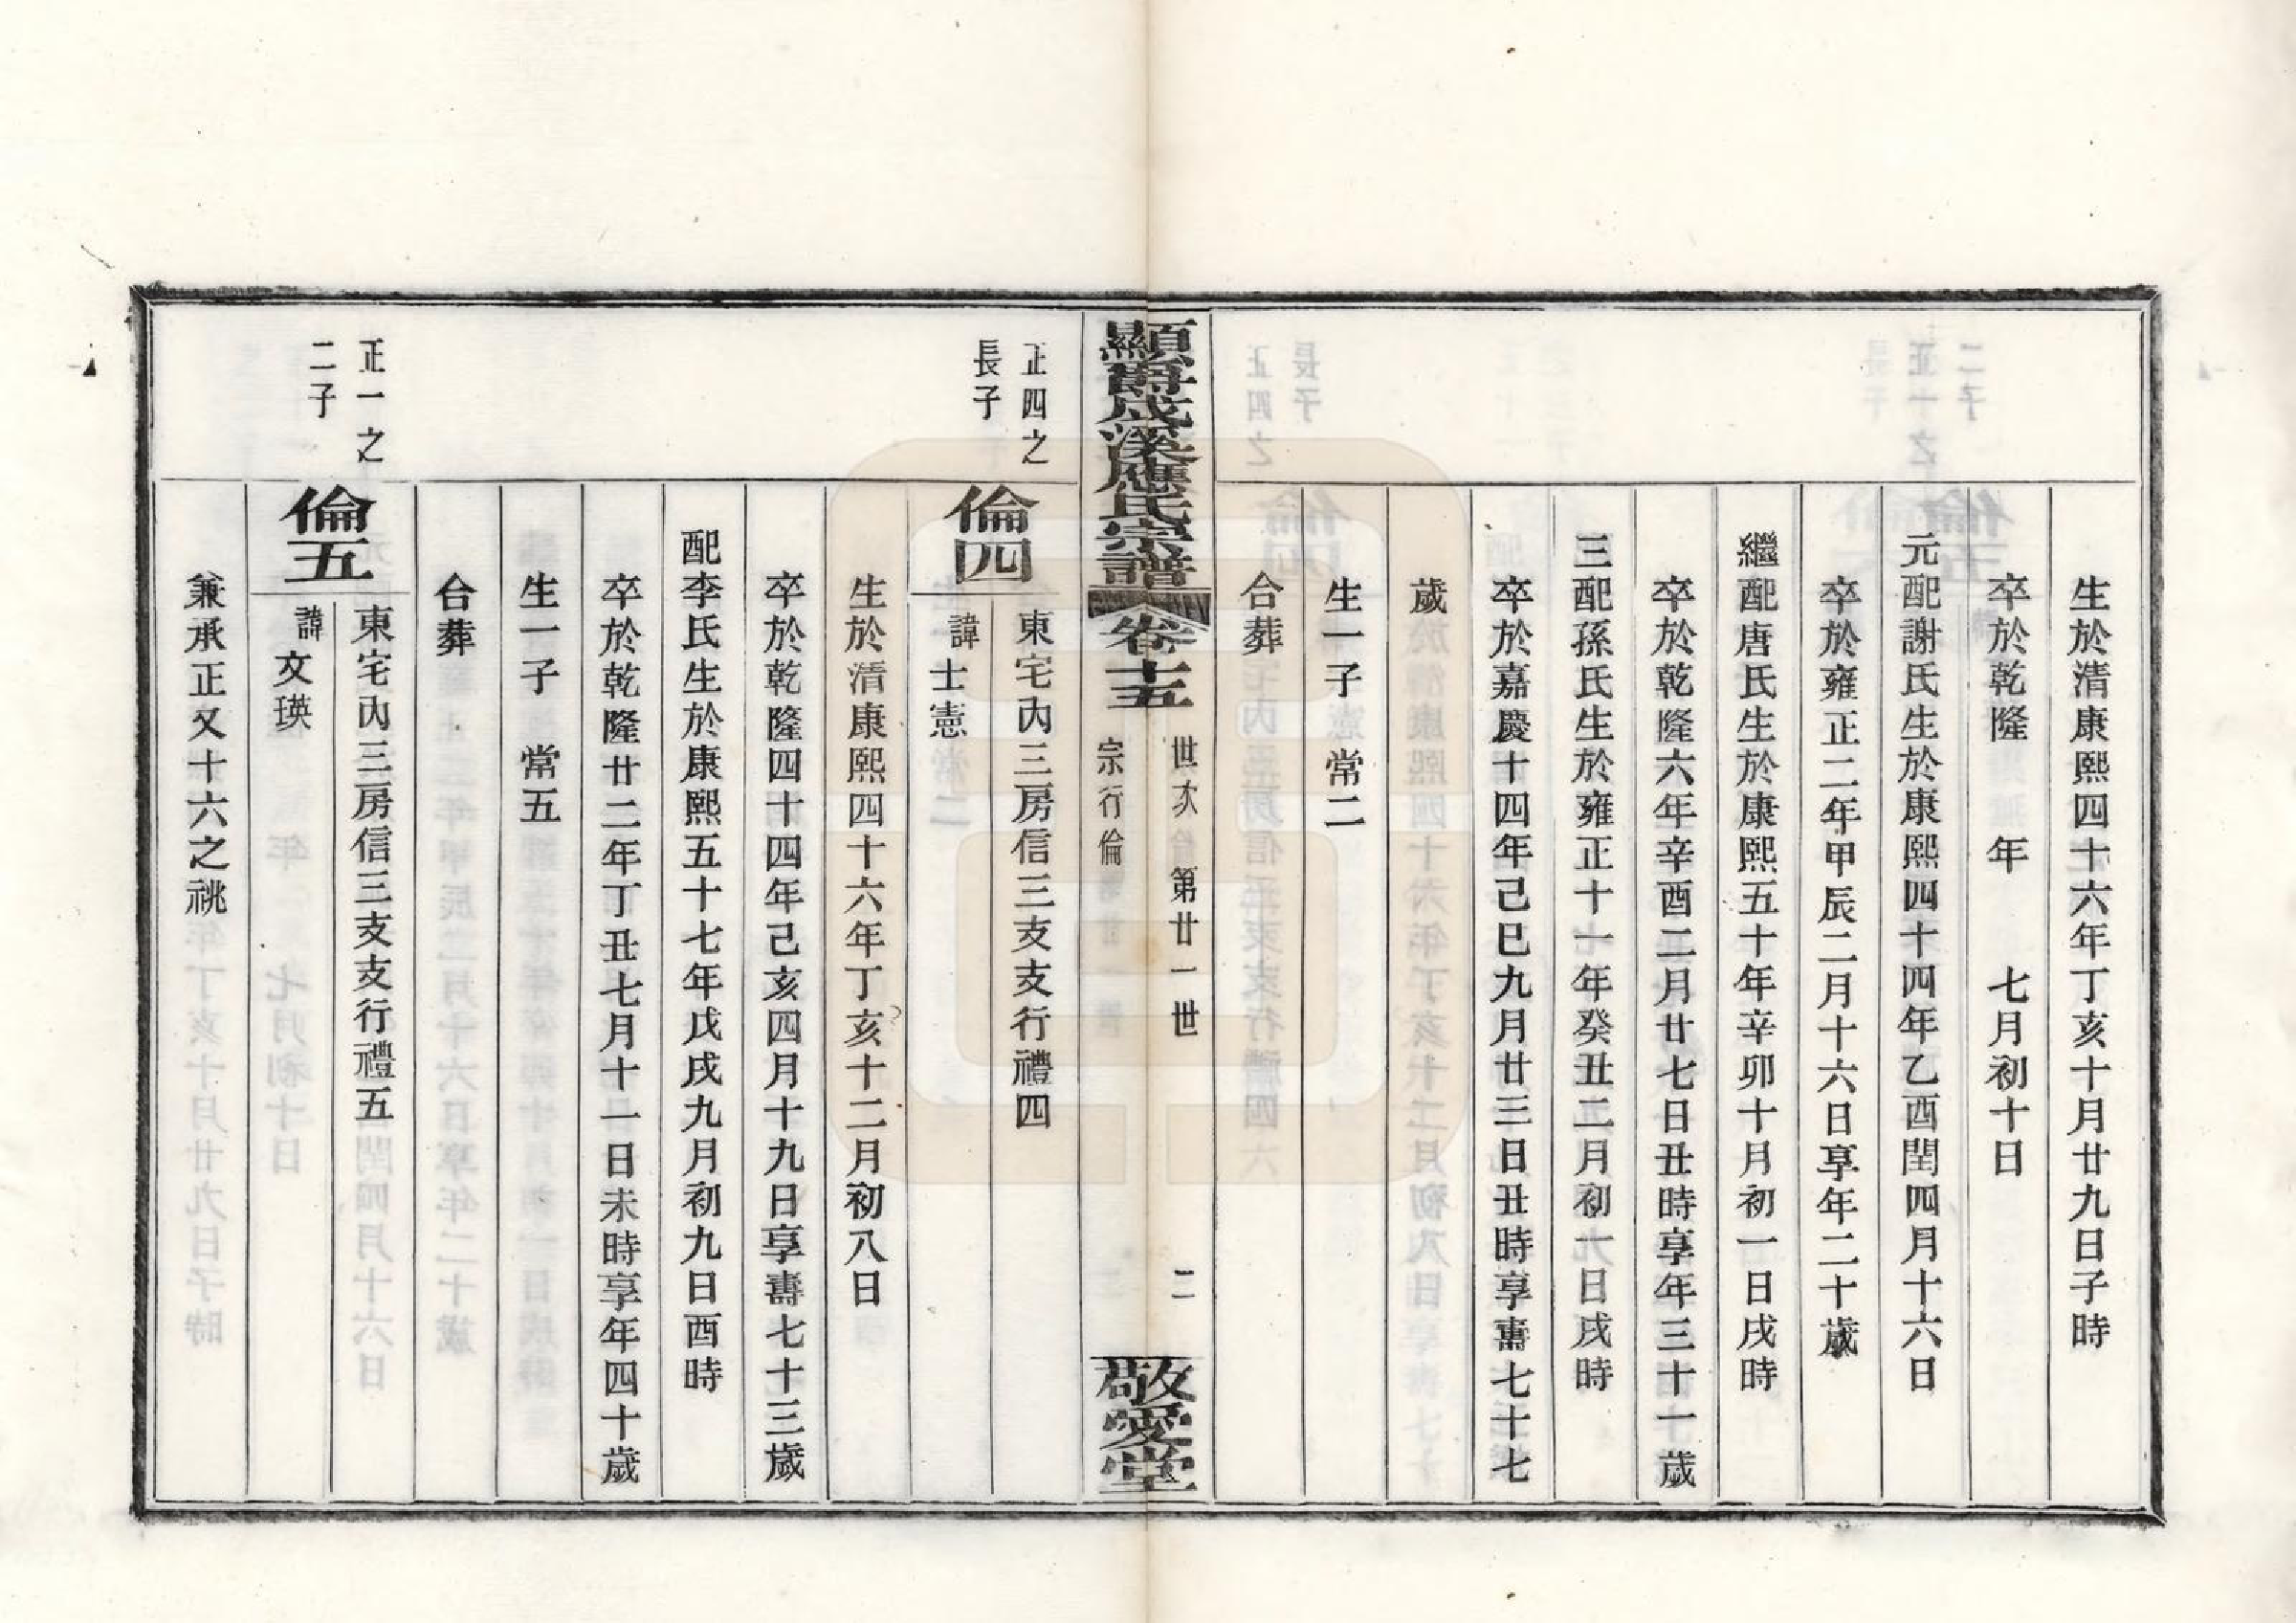 生於清康熙四十六年丁亥十月廿九日子時
卒於乾隆　年　七月初十日
元配謝氏生於康熙四十四年乙酉閏四月十六日
卒於雍正二年甲辰二月十六日享年二十歲
繼配唐氏生於康熙五十年辛卯十月初一日戌時
卒於乾隆六年辛酉二月廿七日丑時享年三十一歲
三配孫氏生於雍正十一年癸丑二月初一日戌時
卒於嘉慶十四年己巳九月廿三日丑時享壽七十七
歲
生一子　常二
合葬
顯爵成溪應氏宗譜　卷十五
世次　第廿一世
宗行倫
二
敬愛堂
正四之
長子
倫四
東宅內三房信三支支行禮四
諱士憲
生於清康熙四十六年丁亥十二月初八日
卒於乾隆四十四年己亥四月十九日享壽七十三歲
配李氏生於康熙五十七年戊戌九月初九日酉時
卒於乾隆廿二年丁丑七月十一日未時享年四十歲
生一子　常五
合葬
正一之
二子
倫五
東宅內三房信三支支行禮五
諱文瑛
兼承正又十六之祧